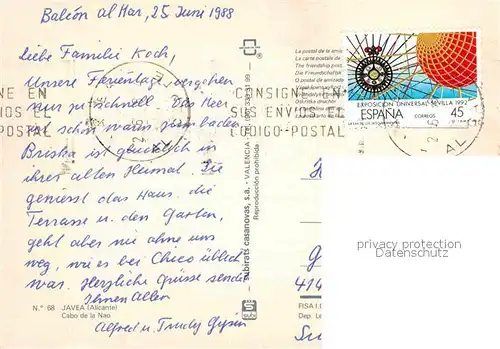 Balcón al Mar, 25. Juni 1988
Liebe Familie Koch,
Unsere Ferientage vergehen
nur zu schnell. Das Meer
ist schön warm zum baden
Briska ist glücklich in
ihrer alten Heimat. Sie
geniesst das Haus. die
Terrasse u. den Garten,
geht aber nie ohne uns
weg, wie es bei Chico üblich
war. Herzliche Grüsse senden
Ihnen Allen
Alfred u. Trudy Gysin
N.º 68 JAVEA (Alicante)
Cabo de la Nao
subirats casanovas, s.a. - VALENCIA
Reproducción prohibida
CONSIGNE EN
SUS ENVIOS EL
CODIGO-POSTAL
NE EN
IOS EL
POSTAL
La postal de la
La carte postale de
The friendship post
Die Freundschafts
EXPOSICION UNIVERSAL SEVILLA 1992
ESPAÑA
CORREOS
45
privacy protection
Datenschutz
414
FISA I.G.
Dep. Le